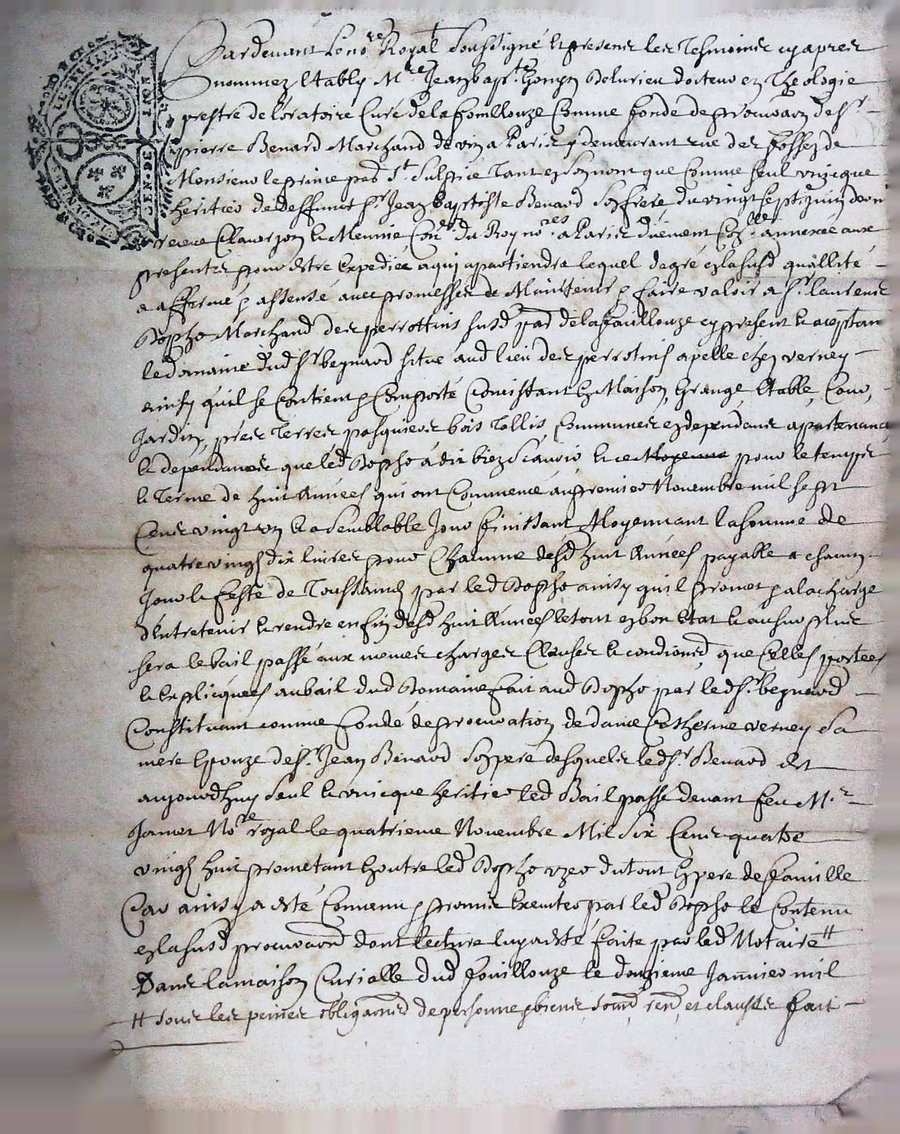 GEN. DE LION
Pardevant le no.re Royal Soussigné et presens les Tesmoins cy apres
nommez Estably M.re Jean bap.te Delurieu docteur en Theologie
prestre de loratoire Curé de la fouillouze Comme fondé de procura.on de s.r
pierre Benard Marchand de vin a Paris y demeurant rue des fossez de
Monsieur le prince par. S.t Sulpice Tant en son nom que comme seul unicque
heritier de deffunct S.r Jean Baptiste Benard son frere du vingt sept juin
receue Con.er du Roy no.res a Paris annexée aux
presentes pour estre expediée a qui apartiendra lequel de gré en la susd. quallité
a affermé et assensé avec promesse de Maintenir et faire valoir a S.r laurens
Bopho Marchand des perrottins susd. par. de la fouillouze cy present et aceptant
le domaine dud. S.r begnard situé aud. lieu des perrotins apellé chez verney
ainsy quil se Contient et Comporte Consistant en Maison, Grange, Estable, Cour,
Jardin, prés Terres pasquiers bois Tallis Communes en dependans apartenances
et dependances que led. Bopho a dit bien Scavoir, et ce pour le temps
et Terme de huit Années qui ont Commencé au premier Novembre mil sept
Cens vingt un et a semblable Jour finissant Moyennant la somme de
quatre vingt dix livres pour Chacune desd. huit Années payable a chacun
Jour et feste de Toussaincts par led. Bopho ainsy quil promet et a la charge
d'entretenir et rendre en fin desd. huit Années le tout en bon Estat et au surplus
sera le bail passé aux memes charges Clauses et conditions que Celles portées
et Explicquées au bail dud. Domaine fait aud. Bopho par led. S.r begnard
Constituant comme fondé de procuration de dame Catherine verney Sa
mere Epouze de S.r Jean Benard Son pere desquels led. S.r Benard est
aujourdhuy Seul et unicque heritier led. Bail passé devant feu M.re
Jamet No.re royal le quatrieme Novembre Mil Six Cens quatre
vingt huit prometant En outre led. Bopho user du tout En pere de famille
Car ainsy a esté Convenu et promis Executer par led. Bopho le Contenu
en la susd. procura.on dont lecture luy a esté faite par led. Notaire #
Dans la maison Curialle dud. fouillouze le douzieme Janvier mil
# sous les peines obliga.ons de personne et biens, soum. ren. et clauses fait